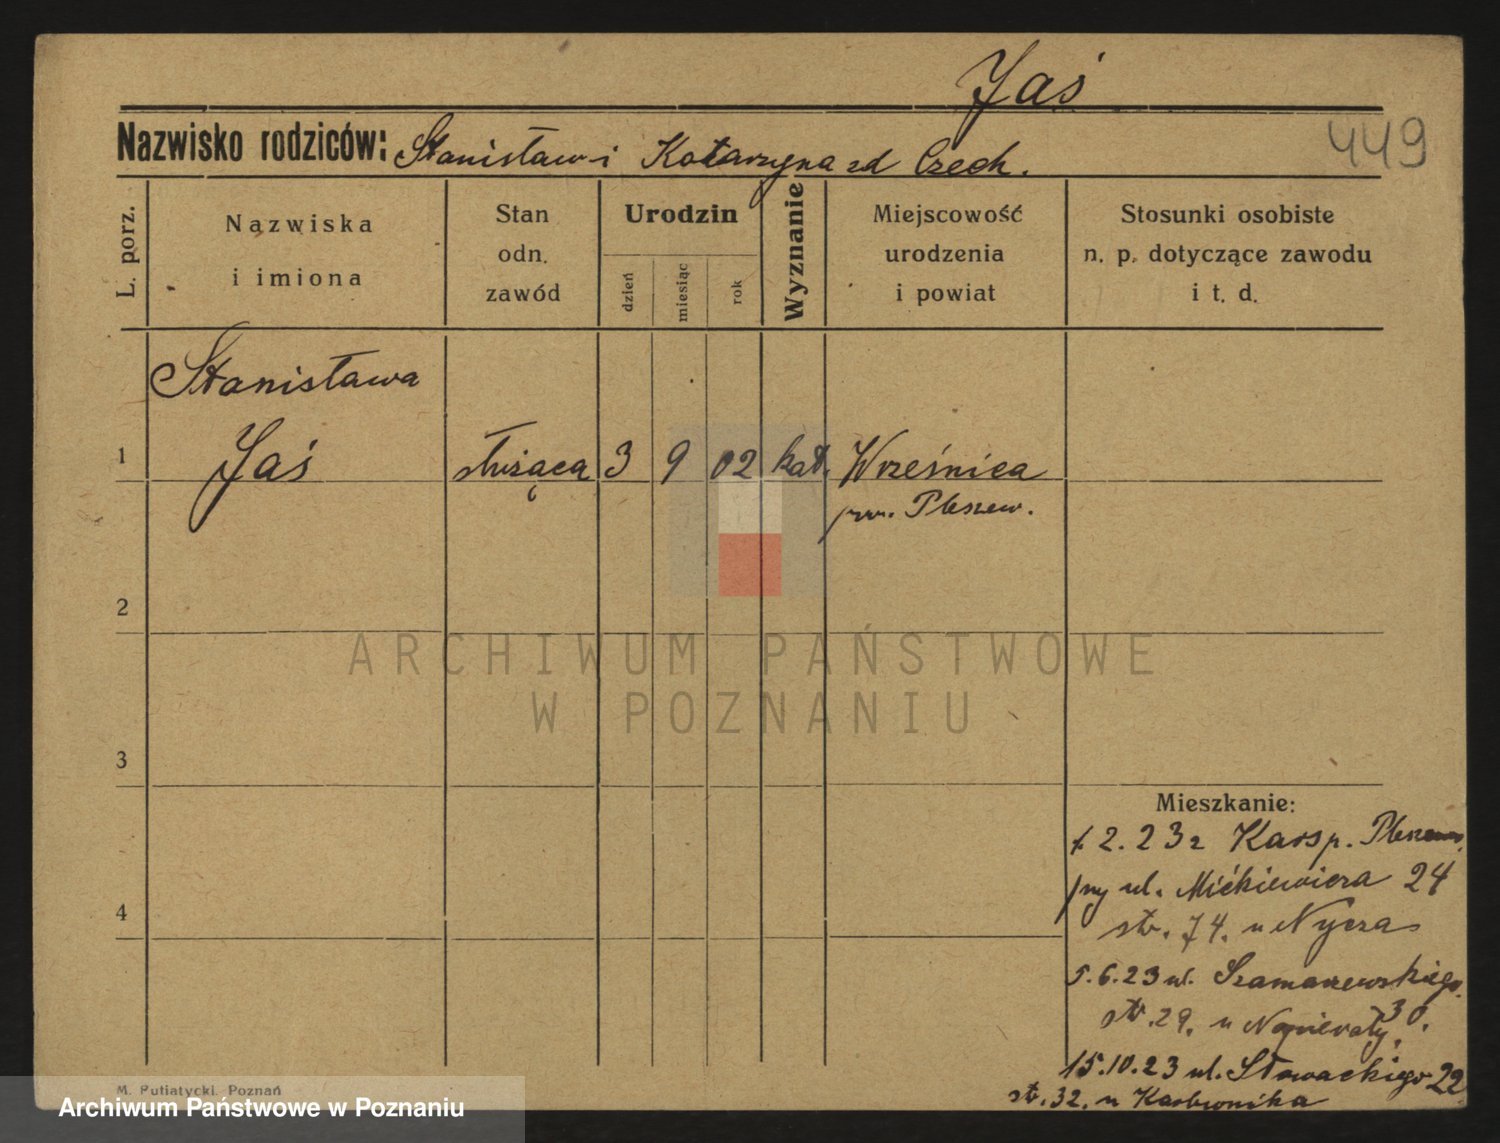 Jaś
449
Nazwisko rodziców: Stanisław i Katarzyna zd Czech.
L. porz.
Nazwiska
i imiona
Stan
odn.
zawód
Urodzin
dzień
miesiąc
rok
Wyznanie
Miejscowość
urodzenia
i powiat
Stosunki osobiste
n. p. dotyczące zawodu
i t. d.
Stanisława
1 Jaś służąca 3 9 02 kat. Wrześnica
pow. Pleszew.
2
ARCHIWUM PAŃSTWOWE
W POZNANIU
3
Mieszkanie:
1.2.23 z Karsp. Pleszewo.
ul. Mickiewicza 24
4
str. 74. u Nycza
5.6.23 ul. Szamarzewskiego
30.
str. 29. u Napierały
15.10.23 ul. Słowackiego 22
str. 32. u
M. Putiatycki, Poznań
Archiwum Państwowe w Poznaniu